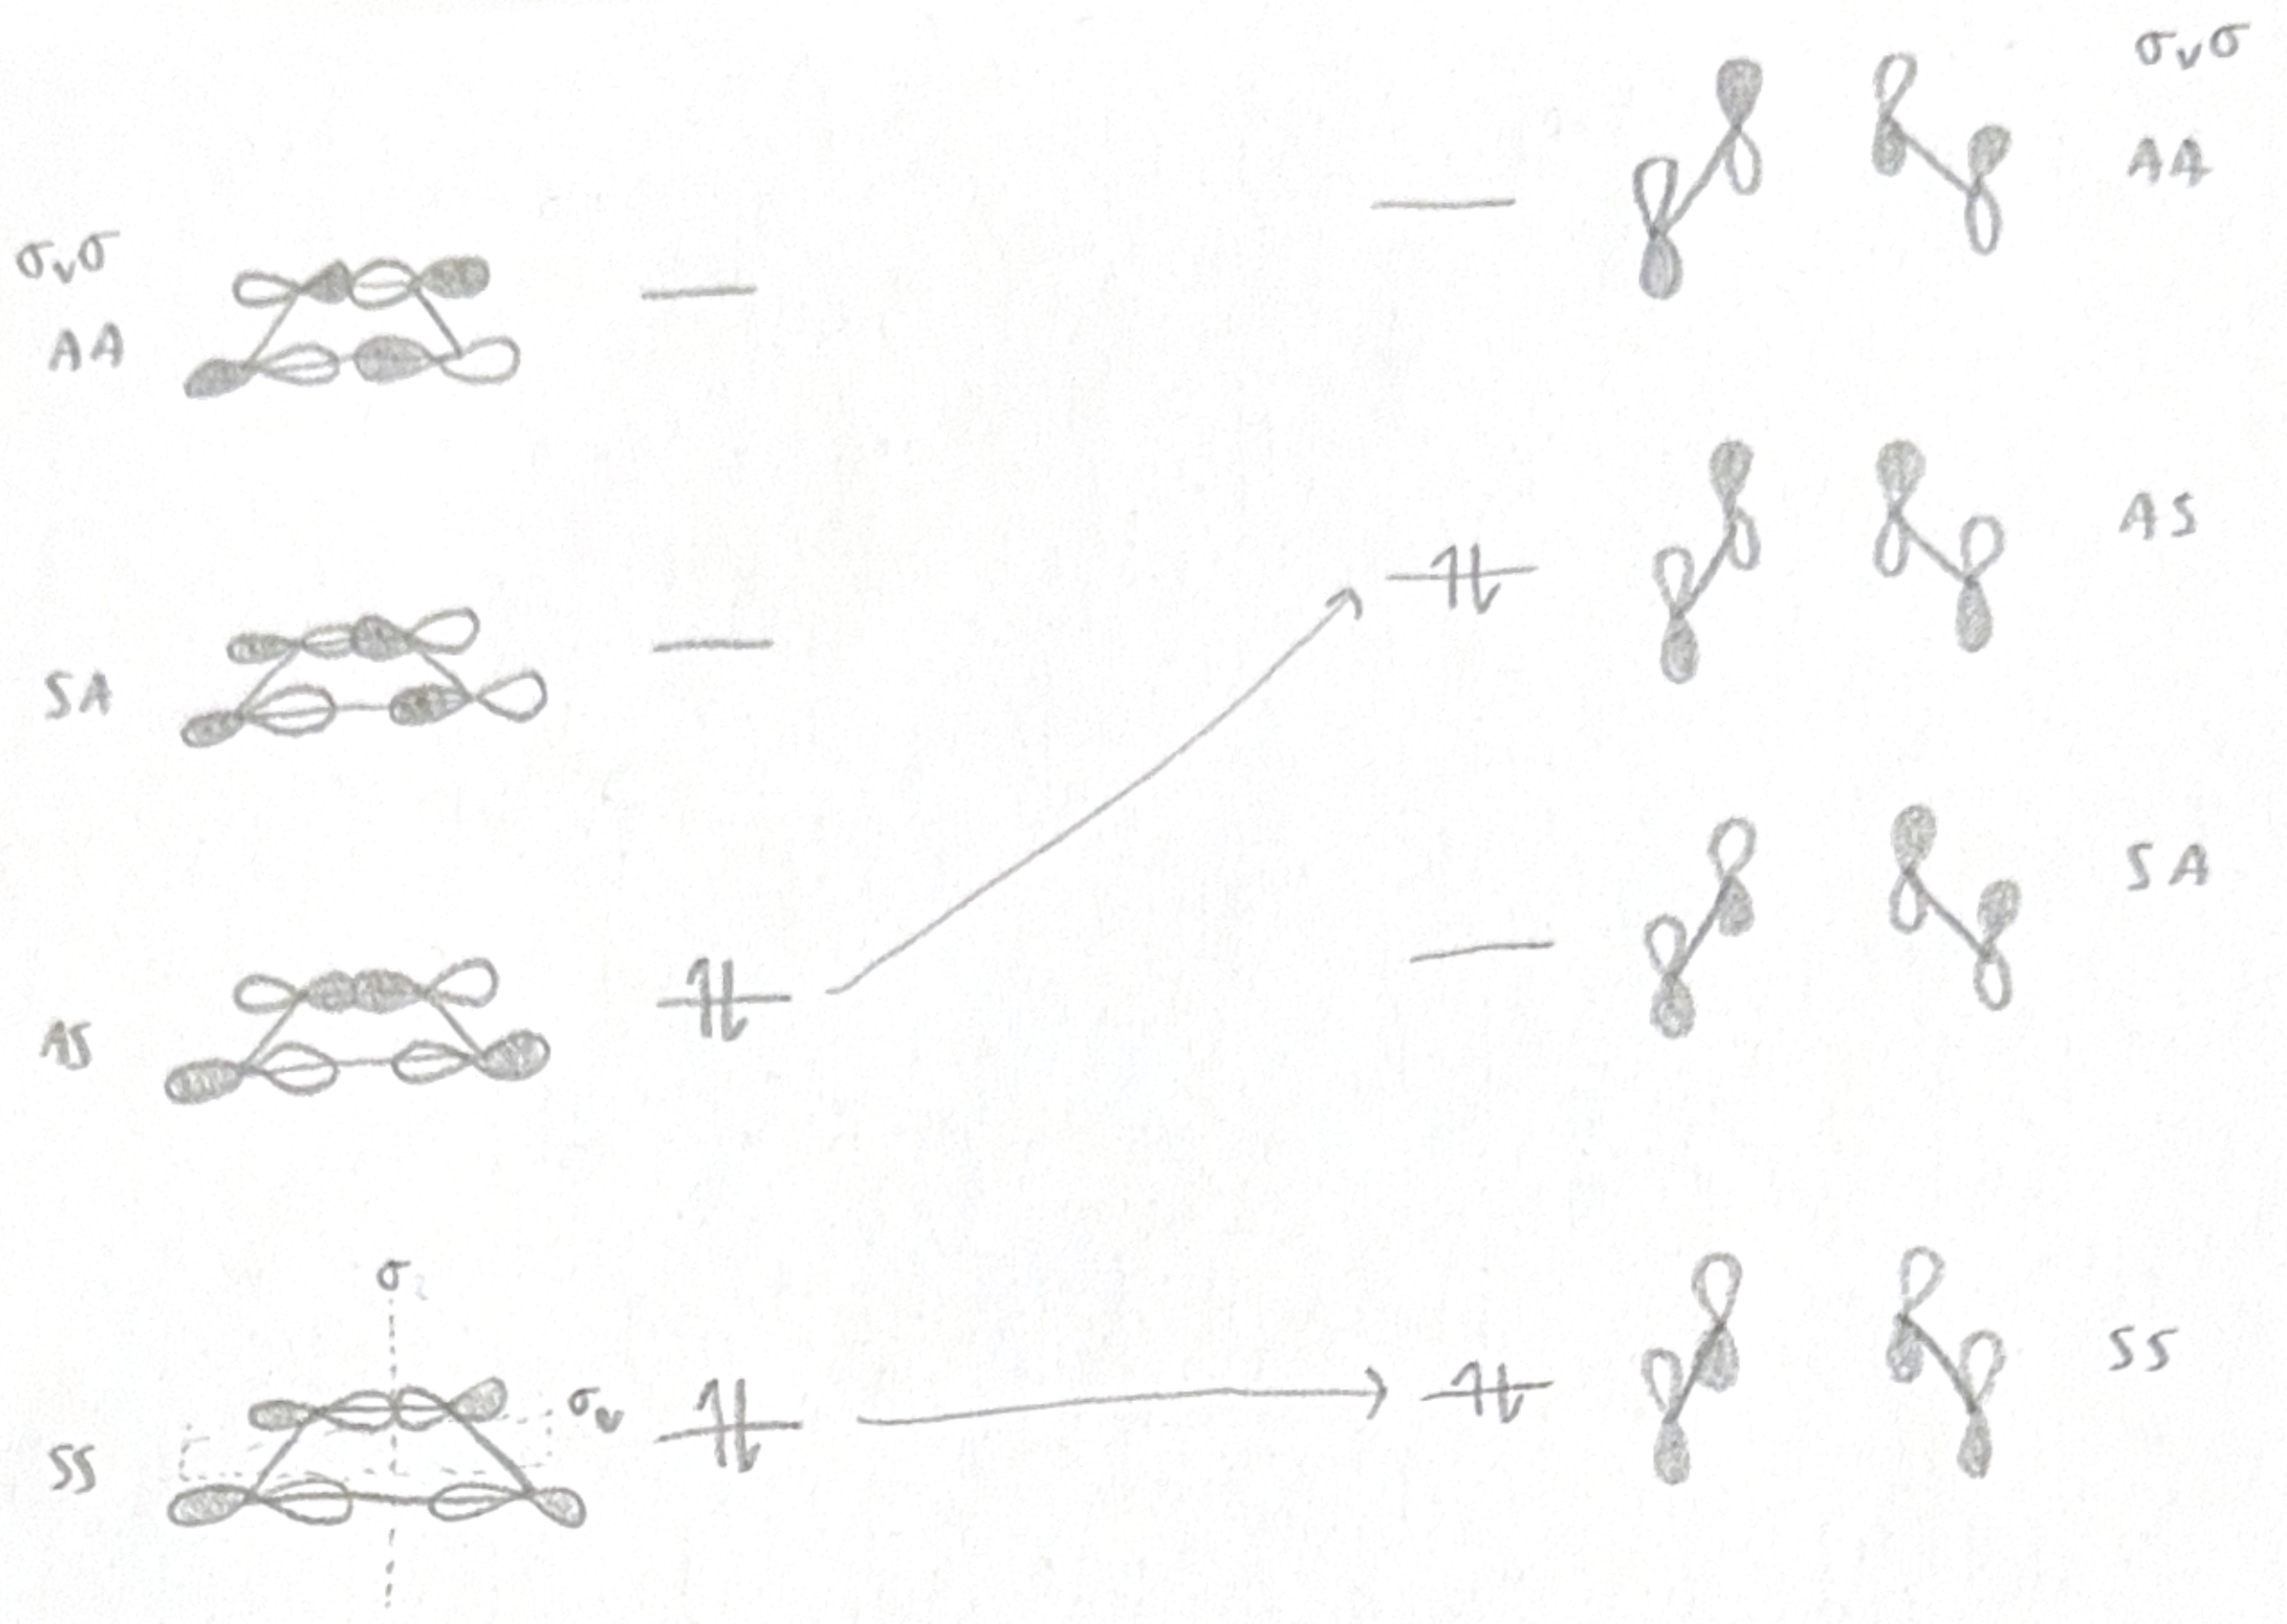 σᵥσ
AA
SA
AS
σ
σᵥ
SS
σᵥσ
AA
AS
SA
SS